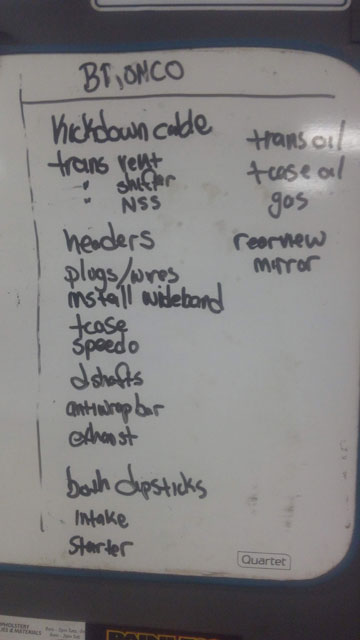 BRONCO
Kickdown cable
trans vent
" shifter
" NSS
headers
plugs/wires
install wideband
tcase
speedo
dshafts
antiwrap bar
exhaust
both dipsticks
Intake
Starter
trans oil
tcase oil
gas
rearview
mirror
Quartet
UPHOLSTERY